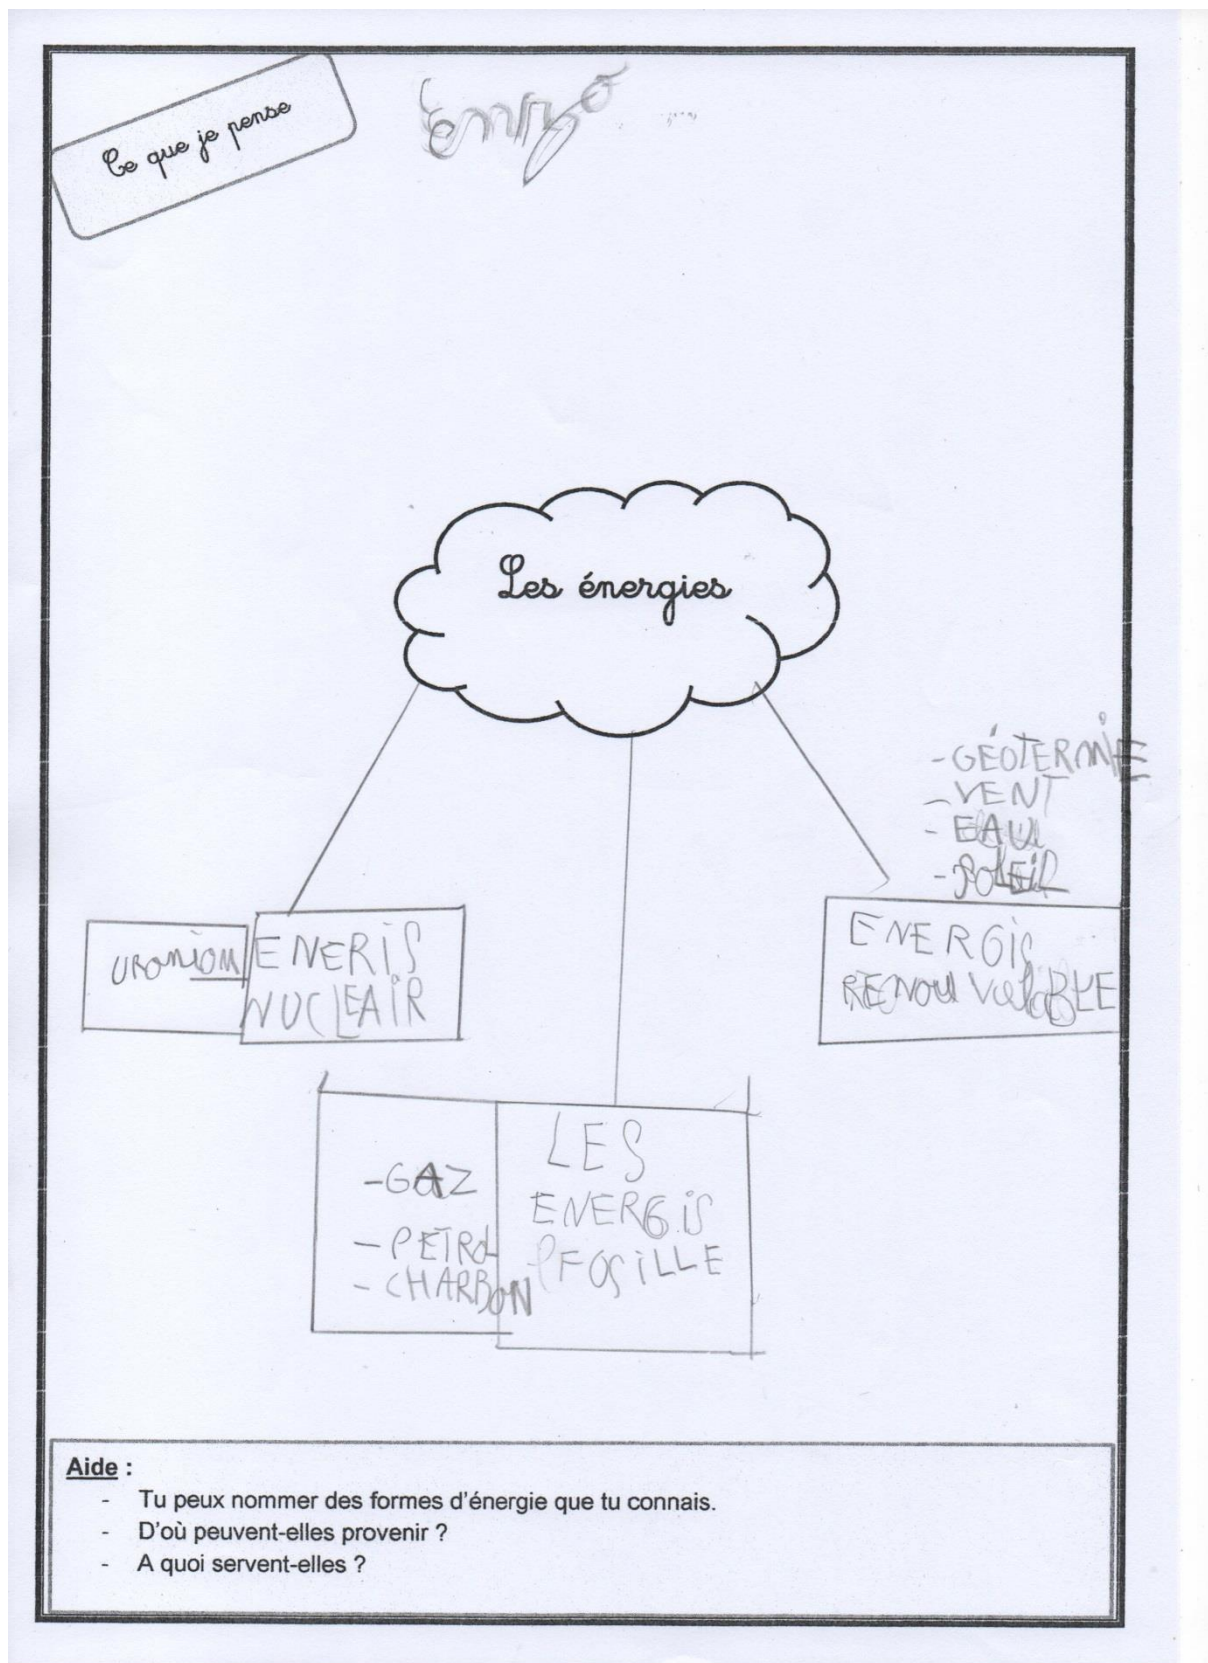 Ce que je pense
Enzo
Les énergies
-GÉOTERMIE
-VENT
-EAU
-SOLEIL
URANIOM
ENERIS
NUCLEAIR
ENERGIS
RENOUVELABLE
-GAZ
-PETROL
-CHARBON
LES
ENERGIS
FOSILLE
Aide :
- Tu peux nommer des formes d'énergie que tu connais.
- D'où peuvent-elles provenir ?
- A quoi servent-elles ?